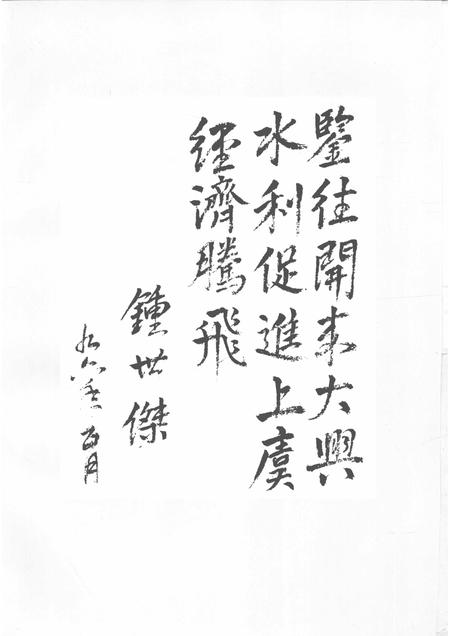 鑒往開来大興
水利促進上虞
經濟騰飛
鍾世傑
九六年